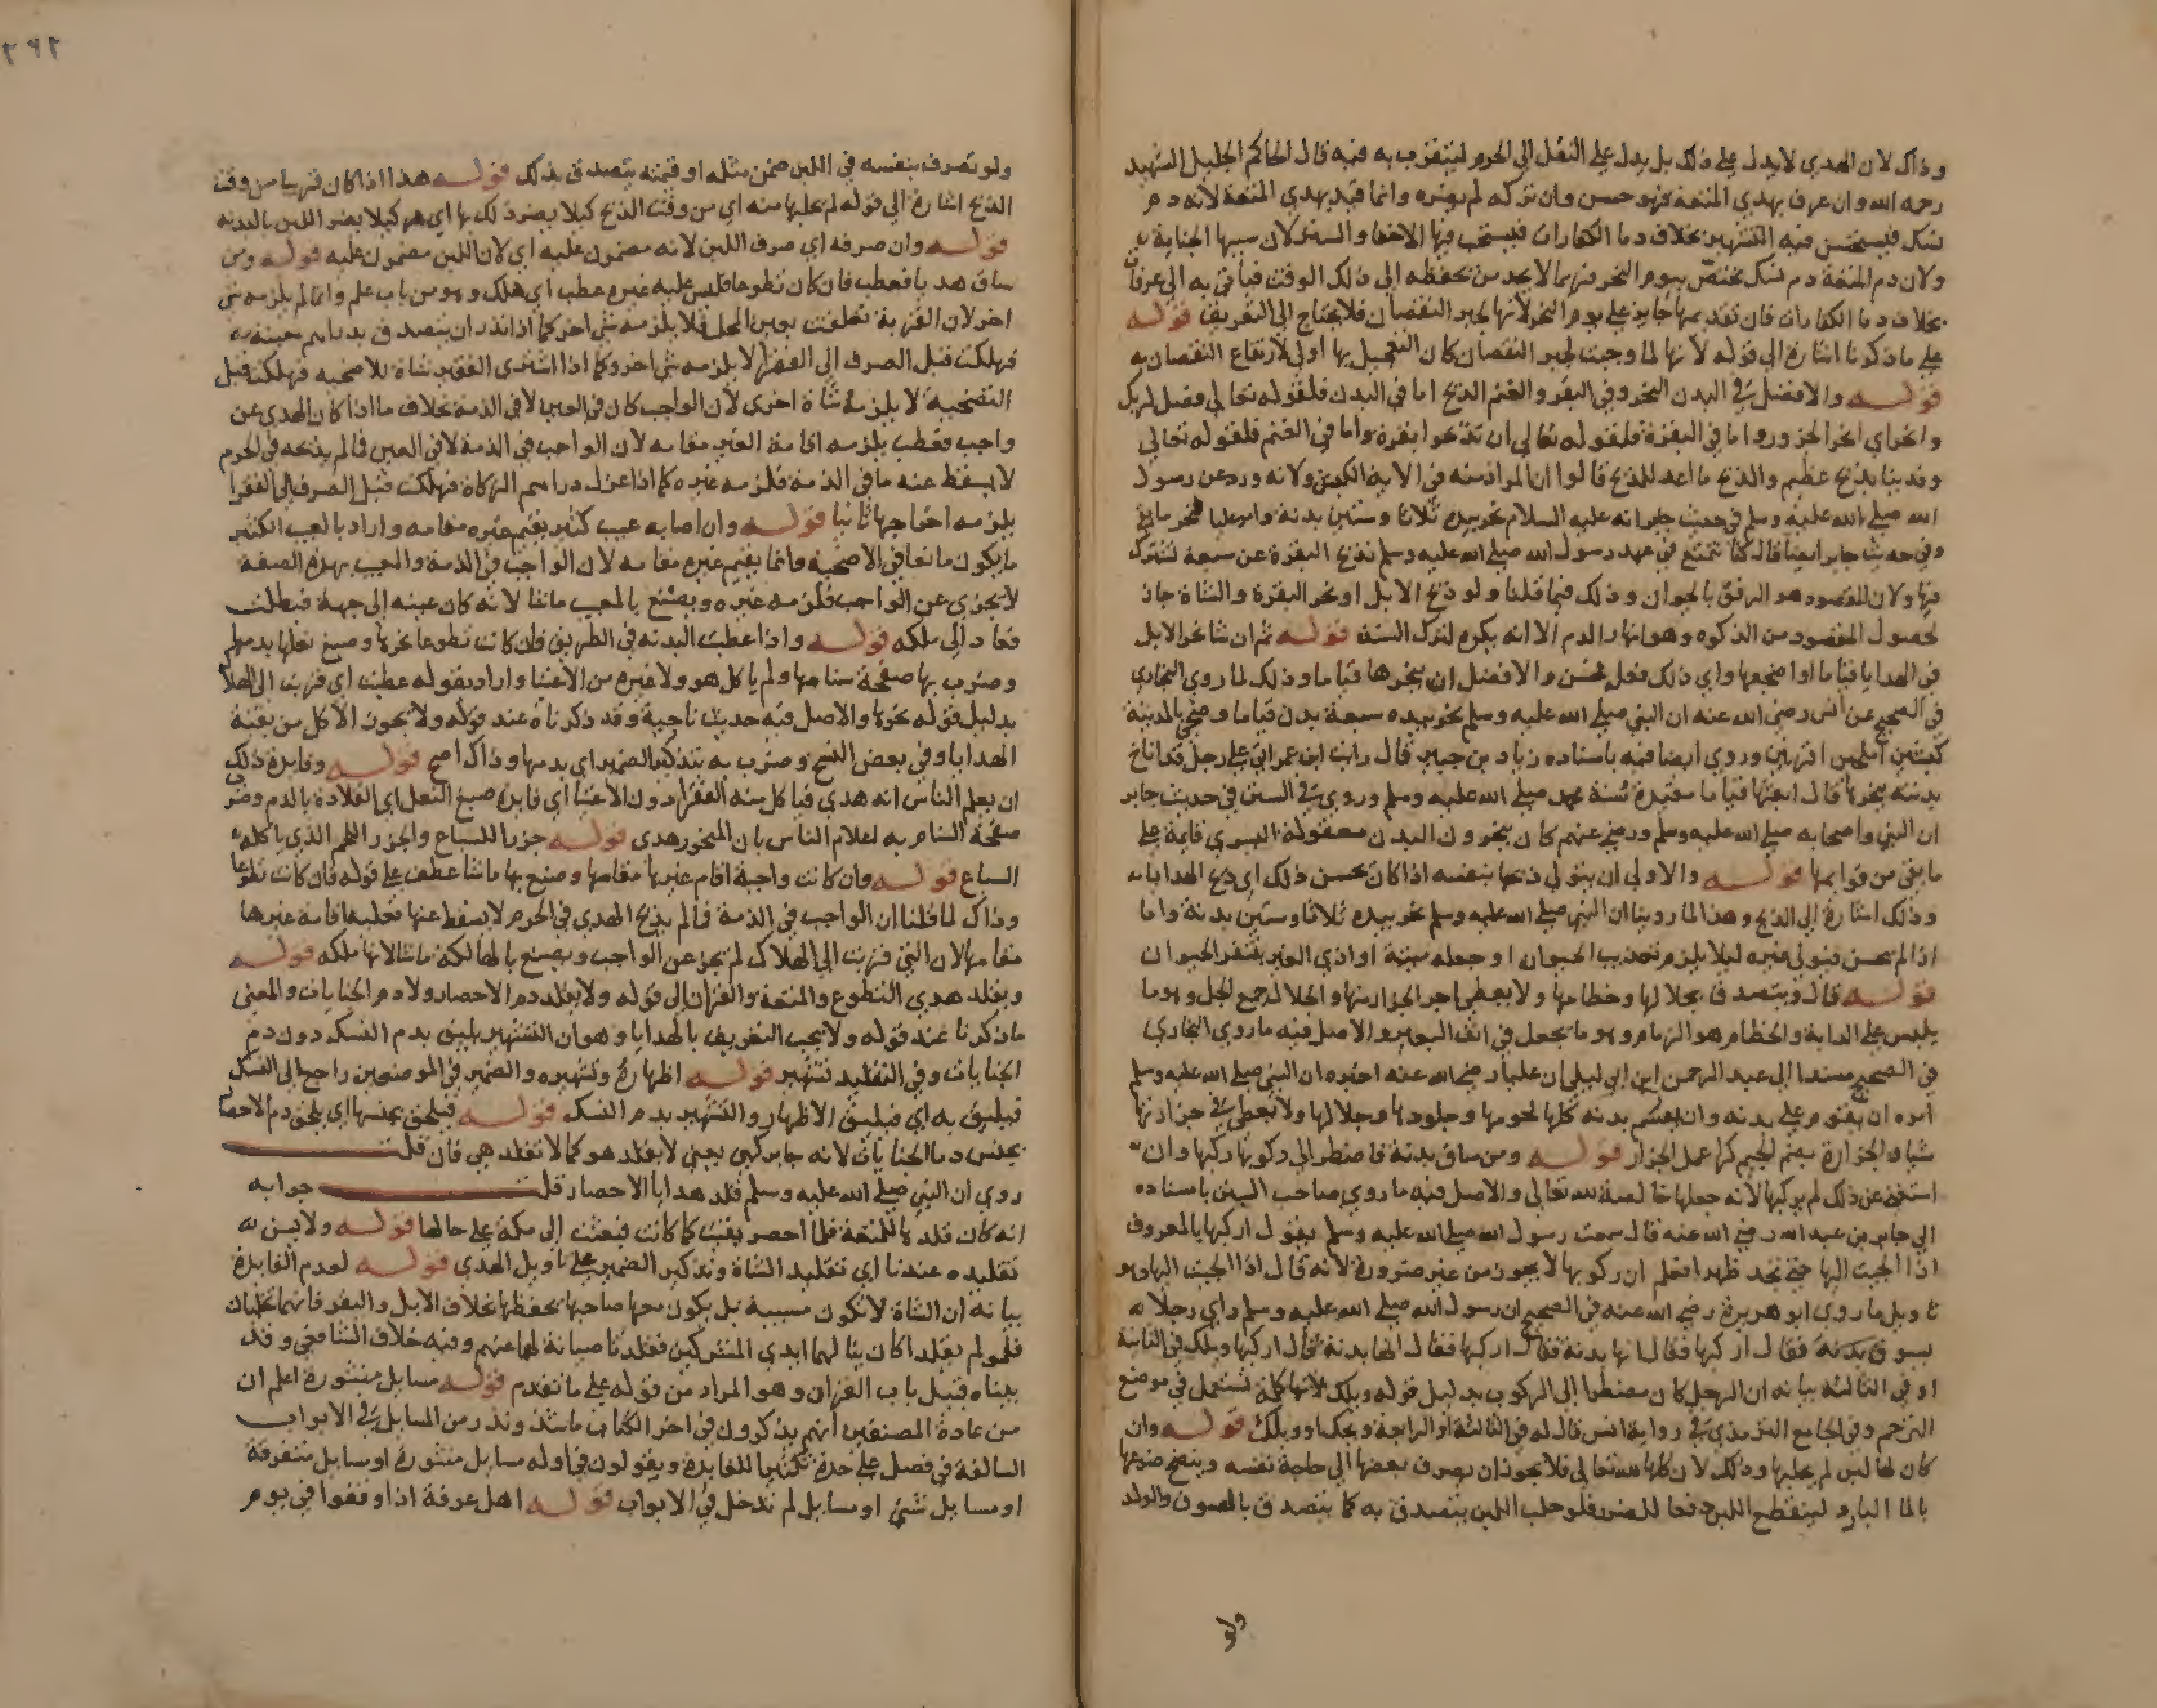 وذاك لان الهدي لا يدل على ذلك بل يدل على النقل الى الحرم ليتقرب به فيه قال الحاكم الجليل الشهيد
رحمه الله وان عرف بهدي المتعة فهو حسن وان تركه لم يضره وانما قيد بهدي المتعة لانه دم
نسك فيستحسن فيه التشهير بخلاف دما الكفارات فيستحب فيها الاخفا والستر لان سببها الجناية
ولان دم المتعة دم نسك مختص بيوم النحر فربما لا يجد من يحفظه الى ذلك الوقت فيأتي به الى عرفات
بخلاف دما الكفارات فان تقديمها جايز على يوم النحر لانها لجبر النقصان فلا يحتاج الى التعريف قوله
على ما ذكرنا اشارة الى قوله لانها لما وجبت لجبر النقصان كان التعجيل بها اولى لارتفاع النقصان به
قوله والافضل في البدن النحر وفي البقر والغنم الذبح اما في البدن فلقوله تعالى فصل لربك
وانحر اي انحر الجزور واما في البقرة فلقوله تعالى ان تذبحوا بقرة واما في الغنم فلقوله تعالى
وفديناه بذبح عظيم والذبح ما اعد للذبح قالوا ان المراد منه في الاية الكبش ولانه ورد عن رسول
الله صلى الله عليه وسلم في حديث جابر انه عليه السلام نحر بيده ثلاثا وستين بدنة وامر عليا فنحر ما بقي
وفي حديث جابر ايضا قال كنا نتمتع في عهد رسول الله صلى الله عليه وسلم نذبح البقرة عن سبعة نشترك
فيها ولان المقصود هو الرفق بالحيوان وذلك فيما قلنا ولو ذبح الابل او نحر البقرة والشاة جاز
لحصول المقصود من الذكوه وهو انهار الدم الا انه يكره لترك السنة قوله ثم ان شا نحر الابل
في الهدايا قياما او اضجعها واي ذلك فعل فحسن والافضل ان ينحرها قياما وذلك لما روى البخاري
في الصحيح عن انس رضي الله عنه ان النبي صلى الله عليه وسلم نحر بيده سبعة بدن قياما وضحى بالمدينة
كبشين املحين اقرنين وروي ايضا فيه باسناده زياد بن جبير قال رايت ابن عمر اتى على رجل قد اناخ
بدنته ينحرها قال ابعثها قياما مقيدة سنة محمد صلى الله عليه وسلم وروي في السنن في حديث جابر
ان النبي واصحابه صلى الله عليه وسلم ورضي عنهم كان ينحرون البدن معقولة اليسرى قايمة على
ما بقي من قوايمها قوله والاولى ان يتولى ذبحها بنفسه اذا كان يحسن ذلك اي ذبح الهدايا
وذلك اشارة الى الذبح وهذا لما روينا ان النبي صلى الله عليه وسلم نحر بيده ثلاثا وستين بدنة واما
اذا لم يحسن فيولي غيره ليلا يلزم تعذيب الحيوان او جعله ميتة او اذى الغير بتنفر الحيوان
قوله قال ويتصدق بجلالها وخطامها ولا يعطي اجر الجزار منها والجلال جمع الجل وهو ما
يلبس على الدابة والخطام هو الزمام وهو ما يجعل في انف البعير والاصل فيه ما روى البخاري
في الصحيح مسندا الى عبد الرحمن ابن ابي ليلى ان عليا رضي الله عنه اخبره ان النبي صلى الله عليه وسلم
امره ان يقوم على بدنه وان يقسم بدنه كلها لحومها وجلودها وجلالها ولا يعطي في جزارتها
شيا والجزارة بضم الجيم كرا عمل الجزار قوله ومن ساق بدنة فاضطر الى ركوبها ركبها وان
استغنى عن ذلك لم يركبها لانه جعلها خالصة لله تعالى والاصل فيه ما روي صاحب السنن باسناده
الى جابر بن عبد الله رضي الله عنه قال سمعت رسول الله صلى الله عليه وسلم يقول اركبها بالمعروف
اذا الجيت اليها حتى تجد ظهرا فعلم ان ركوبها لا يجوز من غير ضرورة لانه قال اذا الجيت اليها وهو
تاويل ما روى ابو هريرة رضي الله عنه في الصحيح ان رسول الله صلى الله عليه وسلم راى رجلا
يسوق بدنة فقال اركبها فقال انها بدنة فقال اركبها فقال انها بدنة فقال اركبها ويلك في الثانية
او في الثالثة بيانه ان الرجل كان مضطرا الى الركوب بدليل قوله ويلك لانها كلمة تستعمل في موضع
الترحم وفي الجامع الترمذي في رواية انس قال له في الثالثة او الرابعة ويحك او ويلك قوله وان
كان لها لبن لم يحلبها وذلك لان كلها لله تعالى فلا يجوز ان يصرف بعضها الى حاجة نفسه وينضح ضرعها
بالما البارد لينقطع اللبن دفعا للضرر فلو حلب اللبن يتصدق به كما يتصدق بالصوف والولد
ولو
٢٩٢
ولو تصرف بنفسه في اللبن ضمن مثله او قيمته يتصدق بذلك قوله هذا اذا كان قريبا من وقت
الذبح اشارة الى قوله لم يحلبها منه اي من وقت الذبح كيلا يضر ذلك بها اي هو كيلا يضر اللبن بالبدنه
قوله وان صرفه اي صرف اللبن لانه مضمون عليه اي لان اللبن مضمون عليه قوله ومن
ساق هديا فعطب فان كان تطوعا فليس عليه غيره عطب اي هلك وهو من باب علم وانما لم يلزمه شي
اخر لان القربة تعلقت بعين المحل فلا يلزمه شي اخر كما اذا نذر ان يتصدق بدراهم معينة
فهلكت قبل الصرف الى الفقرا لا يلزمه شي اخر وكما اذا اشترى الفقير شاة للاضحيه فهلكت قبل
التضحية لا يلزمه شاة اخرى لان الواجب كان في العين لا في الذمة بخلاف ما اذا كان الهدي عن
واجب فعطب يلزمه اقامة الغير مقامه لان الواجب في الذمة لا في العين فما لم يذبحه في الحرم
لا يسقط عنه ما في الذمة فلزمه غيره كما اذا عزل دراهم الزكاة فهلكت قبل الصرف الى الفقرا
يلزمه اخراجها ثانيا قوله وان اصابه عيب كثير يقيم غيره مقامه واراد بالعيب الكثير
ما يكون مانعا في الاضحية وانما يقيم غيره مقامه لان الواجب في الذمة والمعيب بهذه الصفة
لا يجزي عن الواجب فلزمه غيره ويصنع بالمعيب ماشا لانه كان عينه الى جهة فبطلت
فعاد الى ملكه قوله واذا عطبت البدنه في الطريق فان كانت تطوعا نحرها وصبغ نعلها بدمها
وضرب بها صفحة سنامها ولم ياكل هو ولا غيره من الاغنيا واراد بقوله عطبت اي قربت الى الهلاك
بدليل قوله نحرها والاصل فيه حديث ناجية وقد ذكرناه عند قوله ولا يجوز الاكل من بقية
الهدايا وفي بعض النسخ وضرب به بتذكير الضمير اي بدمها وذاك اصح قوله وفايدة ذلك
ان يعلم الناس انه هدي فياكل منه الفقرا دون الاغنيا اي فايدة صبغ النعل اي القلادة بالدم وضرب
صفحة السنام به اعلام الناس بان المنحور هدي قوله جزرا للسباع والجزر اللحم الذي ياكله
السباع قوله وان كانت واجبة اقام غيرها مقامها وصنع بها ما شا عطف على قوله فان كانت تطوعا
وذاك لما قلنا ان الواجب في الذمة فما لم يذبح الهدي في الحرم لا يسقط عنها فعليه اقامة غيرها
مقامها لان التي قربت الى الهلاك لم تجز عن الواجب ويصنع بالهالكة ما شا لانها ملكه قوله
ويقلد هدي التطوع والمتعة والقران الى قوله ولا يقلد دم الاحصار ولا دم الجنايات والمعنى
ما ذكرنا عند قوله ولا يجب التعريف بالهدايا وهو ان التشهير يليق بدم النسك دون دم
الجنايات وفي التقليد تشهير قوله اظهاره وتشهيره والضمير في الموضعين راجع الى النسك
فيليق به اي فيليق الاظهار والتشهير بدم النسك قوله فيلحق بجنسها اي يلحق دم الاحصار
بجنس دما الجنايات لانه جابر كهي يعني لا يقلد هو كما لا تقلد هي فان قلت
روي ان النبي صلى الله عليه وسلم قلد هدايا الاحصار قلت جوابه
انه كان قلدها للمتعة فلما احصر بقيت كما كانت فبعثت الى مكة على حالها قوله ولا يسن
تقليده عندنا اي تقليد الشاة وتذكير الضمير على تاويل الهدي قوله لعدم الفايدة
بيانه ان الشاة لا تكون مسيبة بل يكون معها صاحبها يحفظها بخلاف الابل والبقر فانهما تخليان
فلو لم يقلدا كان ينالهما ايدي المشركين فقلدتا صيانة لهما عنهم وفيه خلاف الشافعي وقد
بيناه قبيل باب القران وهو المراد من قوله على ما تقدم قوله مسايل منثورة اعلم ان
من عادة المصنفين انهم يذكرون في اخر الكتاب ما شذ وندر من المسايل في الابواب
السالفة في فصل على حدة تكثيرا للفايدة ويقولون في اوله مسايل منثورة او مسايل متفرقة
او مسايل شتى او مسايل لم تدخل في الابواب قوله اهل عرفة اذا وقفوا في يوم